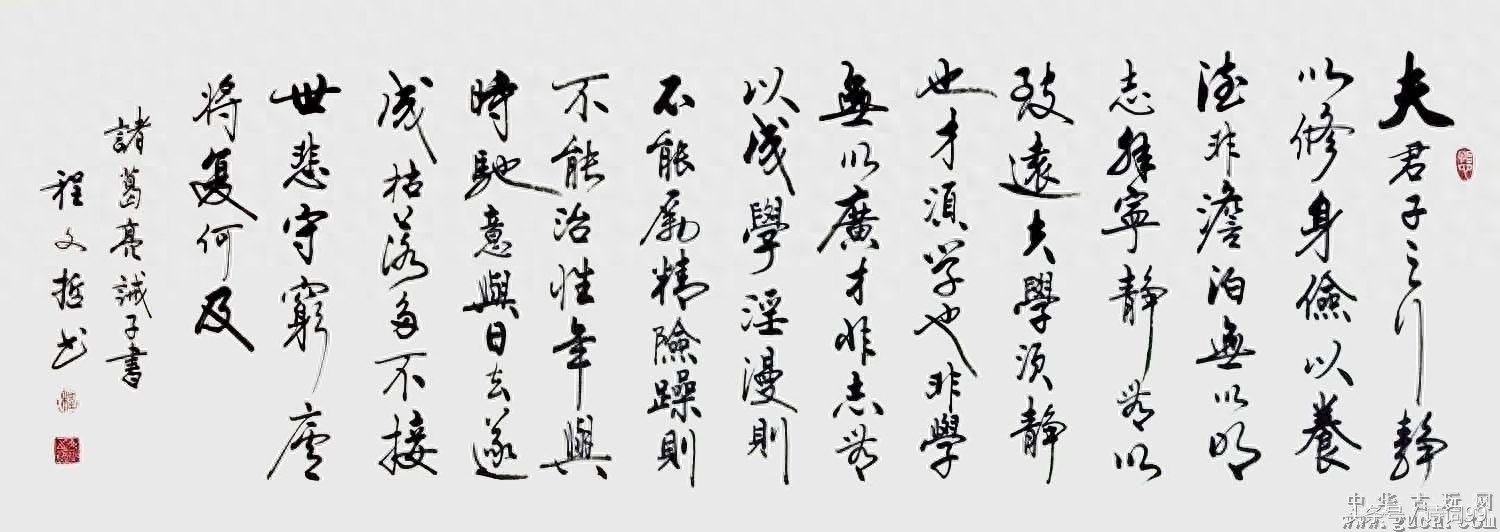 夫君子之行静
以修身儉以養
德非澹泊無以明
志非寧静無以
致遠夫學須静
也才須学也非學
無以廣才非志無
以成學淫漫則
不能勵精險躁則
不能治性年與
時馳意與日去遂
成枯落多不接
世悲守窮廬
将复何及
諸葛亮誡子書
程文哲书
中华古玩网
www.gucn.com